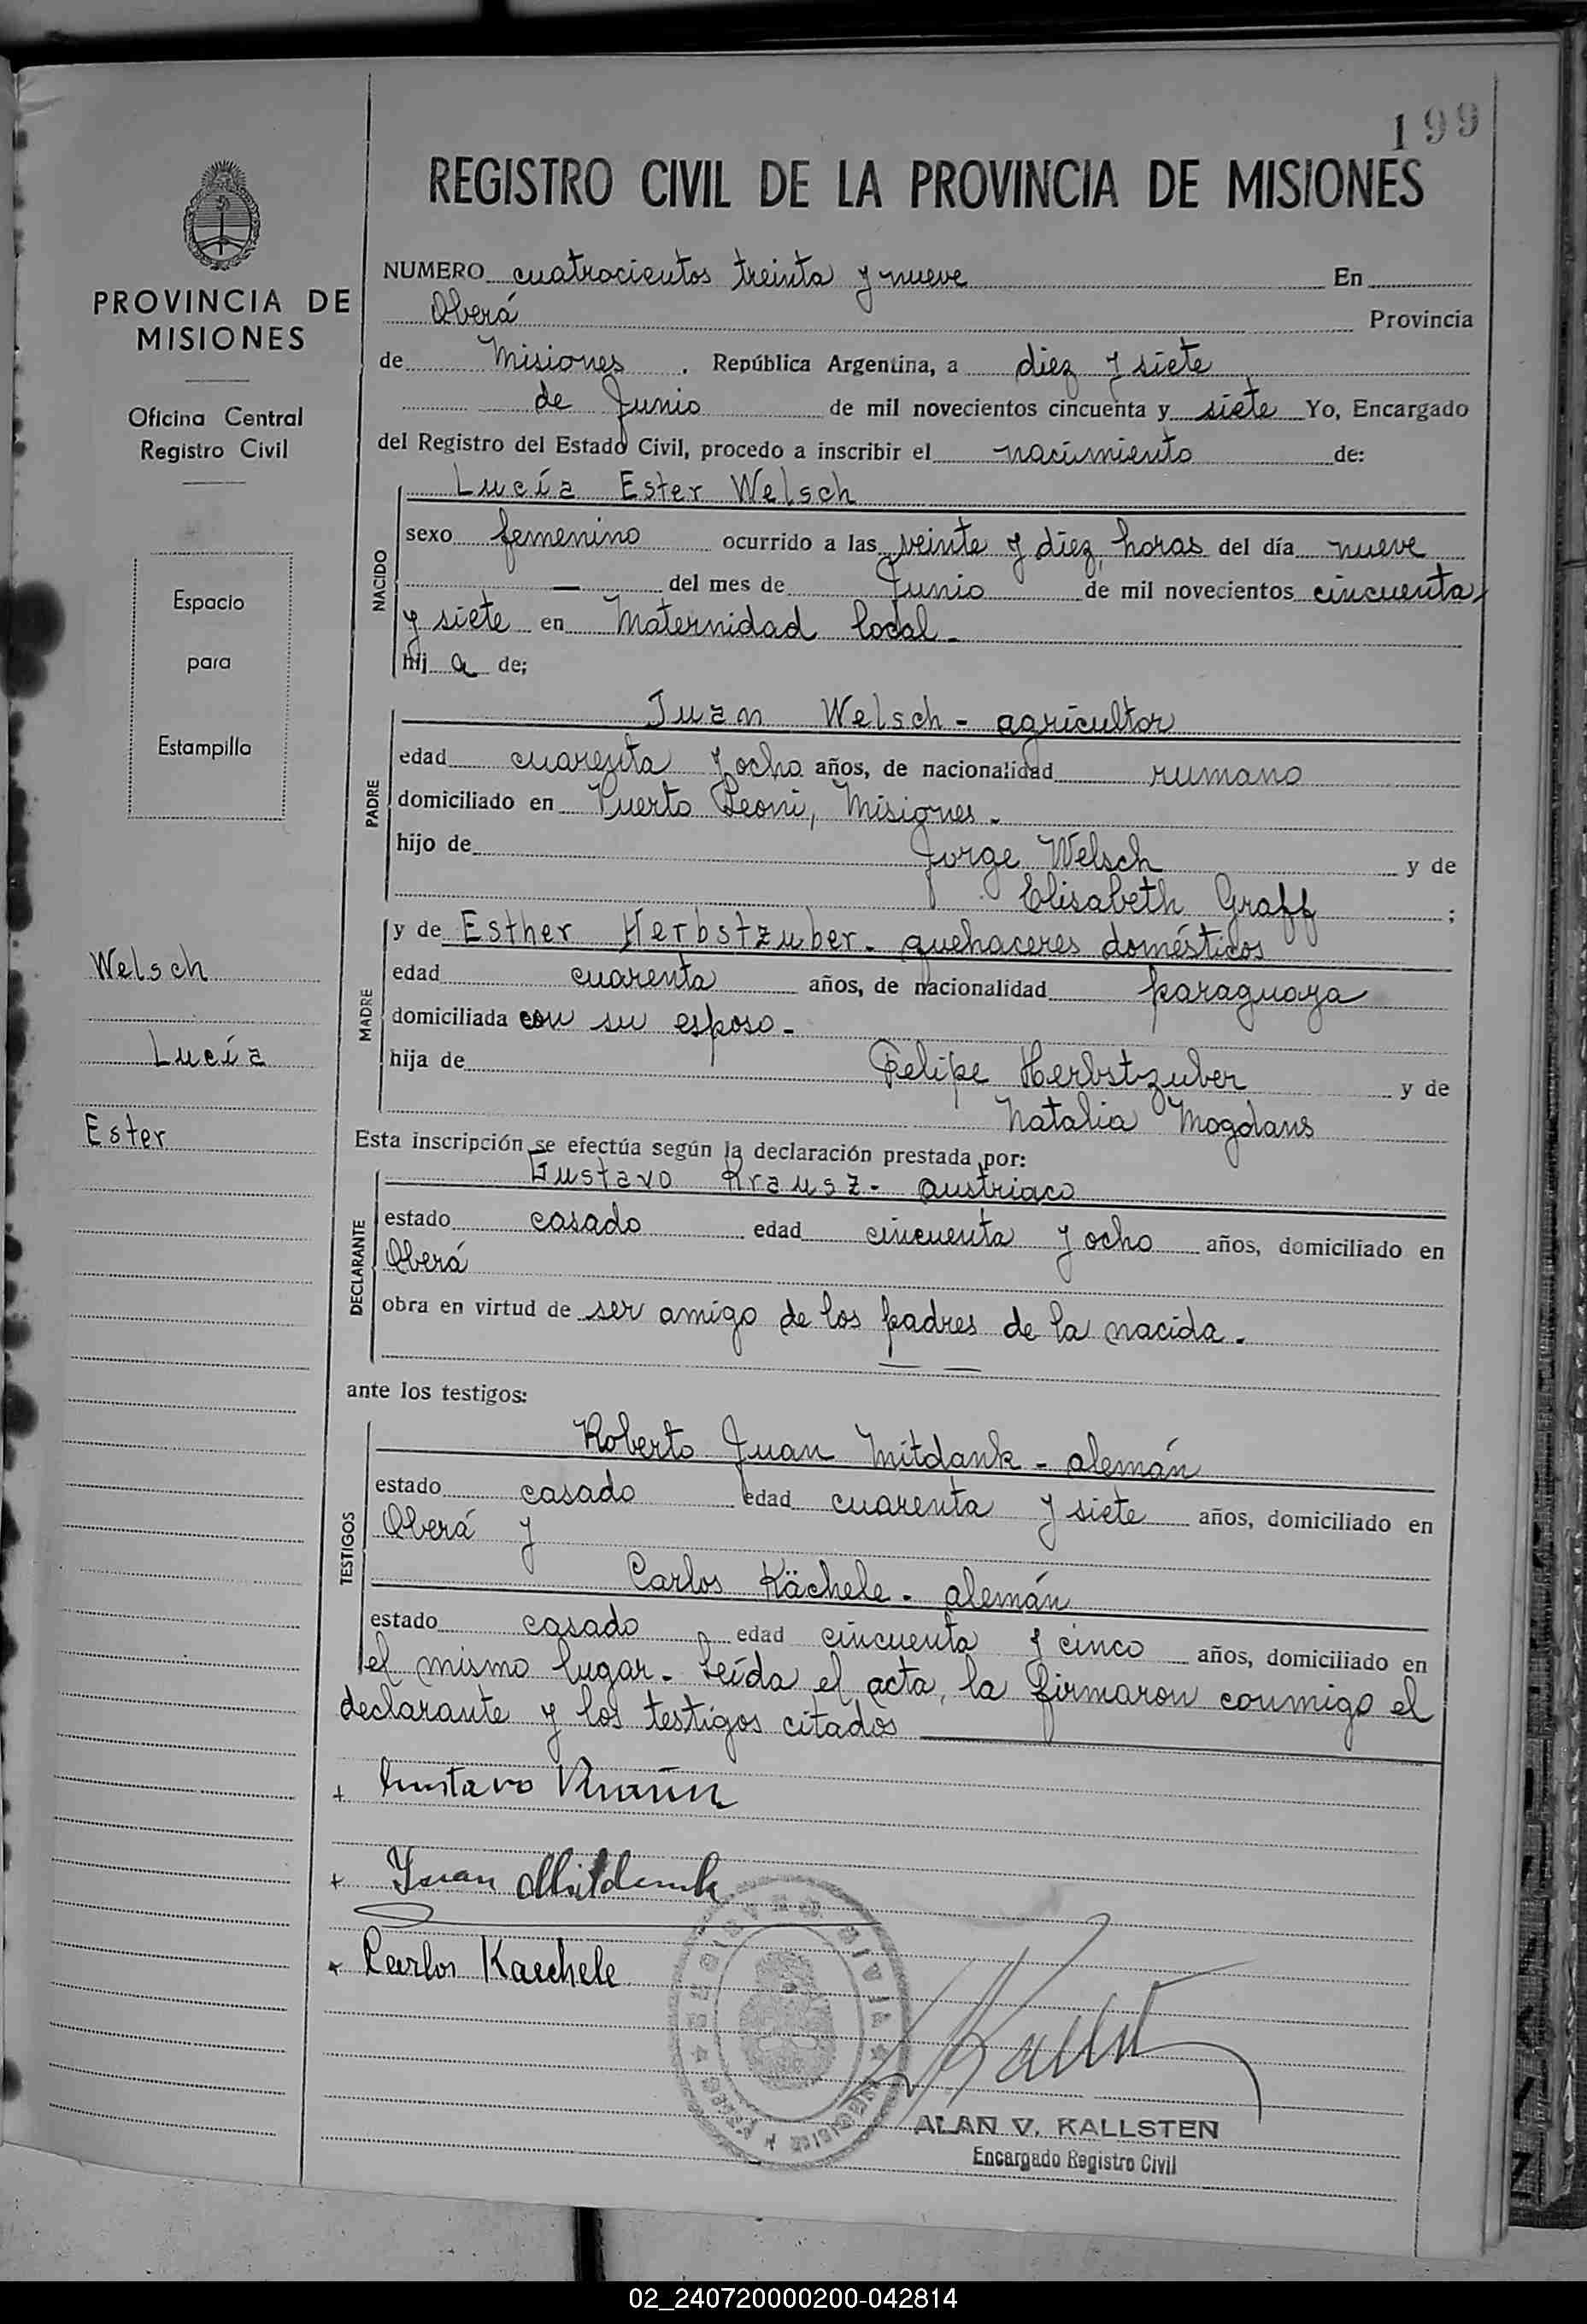 199
REGISTRO CIVIL DE LA PROVINCIA DE MISIONES
PROVINCIA DE
MISIONES
Oficina Central
Registro Civil
Espacio
para
Estampilla
Welsch
Lucía
Ester
NUMERO cuatrocientos treinta y nueve En
Oberá Provincia
de Misiones. República Argentina, a diez y siete
de Junio de mil novecientos cincuenta y siete Yo, Encargado
del Registro del Estado Civil, procedo a inscribir el nacimiento de:
NACIDO
Lucía Ester Welsch
sexo femenino ocurrido a las veinte y diez, horas del día nueve
— del mes de Junio de mil novecientos cincuenta
y siete en Maternidad local.-
hij a de;
PADRE
Juan Welsch - agricultor
edad cuarenta y ocho años, de nacionalidad rumano
domiciliado en Puerto Leoni, Misiones.-
hijo de Jorge Welsch y de
Elisabeth Graff ;
MADRE
y de Esther Herbstzuber - quehaceres domésticos
edad cuarenta años, de nacionalidad paraguaya
domiciliada con su esposo.-
hija de Felipe Herbstzuber y de
Natalia Mogdans
Esta inscripción se efectúa según la declaración prestada por:
DECLARANTE
Gustavo Krausz - austriaco
estado casado edad cincuenta y ocho años, domiciliado en
Oberá
obra en virtud de ser amigo de los padres de la nacida.-
ante los testigos:
TESTIGOS
Roberto Juan Mitdank - alemán
estado casado edad cuarenta y siete años, domiciliado en
Oberá y
Carlos Kächele - alemán
estado casado edad cincuenta y cinco años, domiciliado en
el mismo lugar.- Leída el acta, la firmaron conmigo el
declarante y los testigos citados
+ Gustavo
+ Juan Mitdank
+ Carlos Kaechele
REGISTRO CIVIL
ALAN V. KALLSTEN
Encargado Registro Civil
02_240720000200-042814